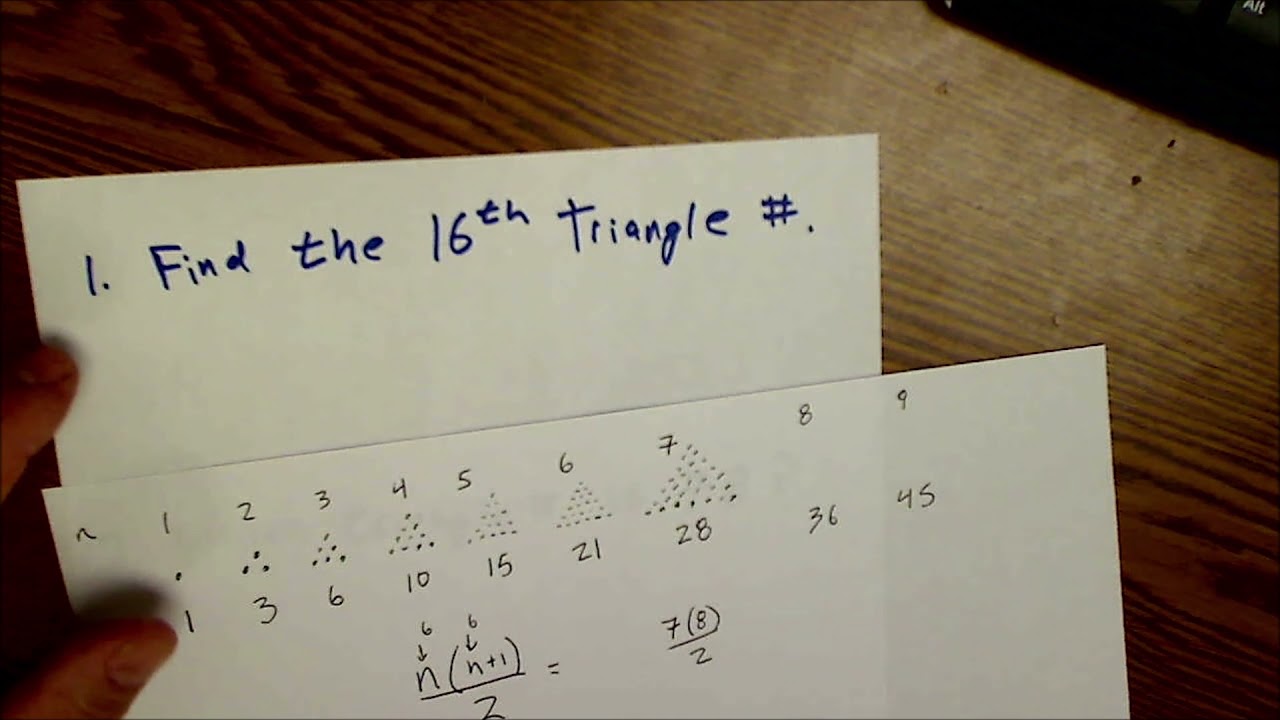 1. Find the 16th triangle #.
n 1 2 3 4 5 6 7 8 9
1 3 6 10 15 21 28 36 45
6 6
↓ ↓
n(n+1) = 7(8)
2 2
Alt